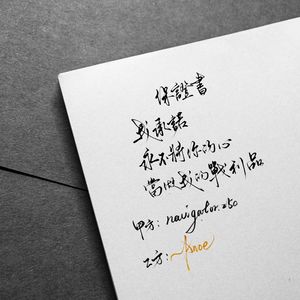 保證書
我承諾
永不將你的心
當做我的戰利品
甲方：navigator.250
乙方：Anoe